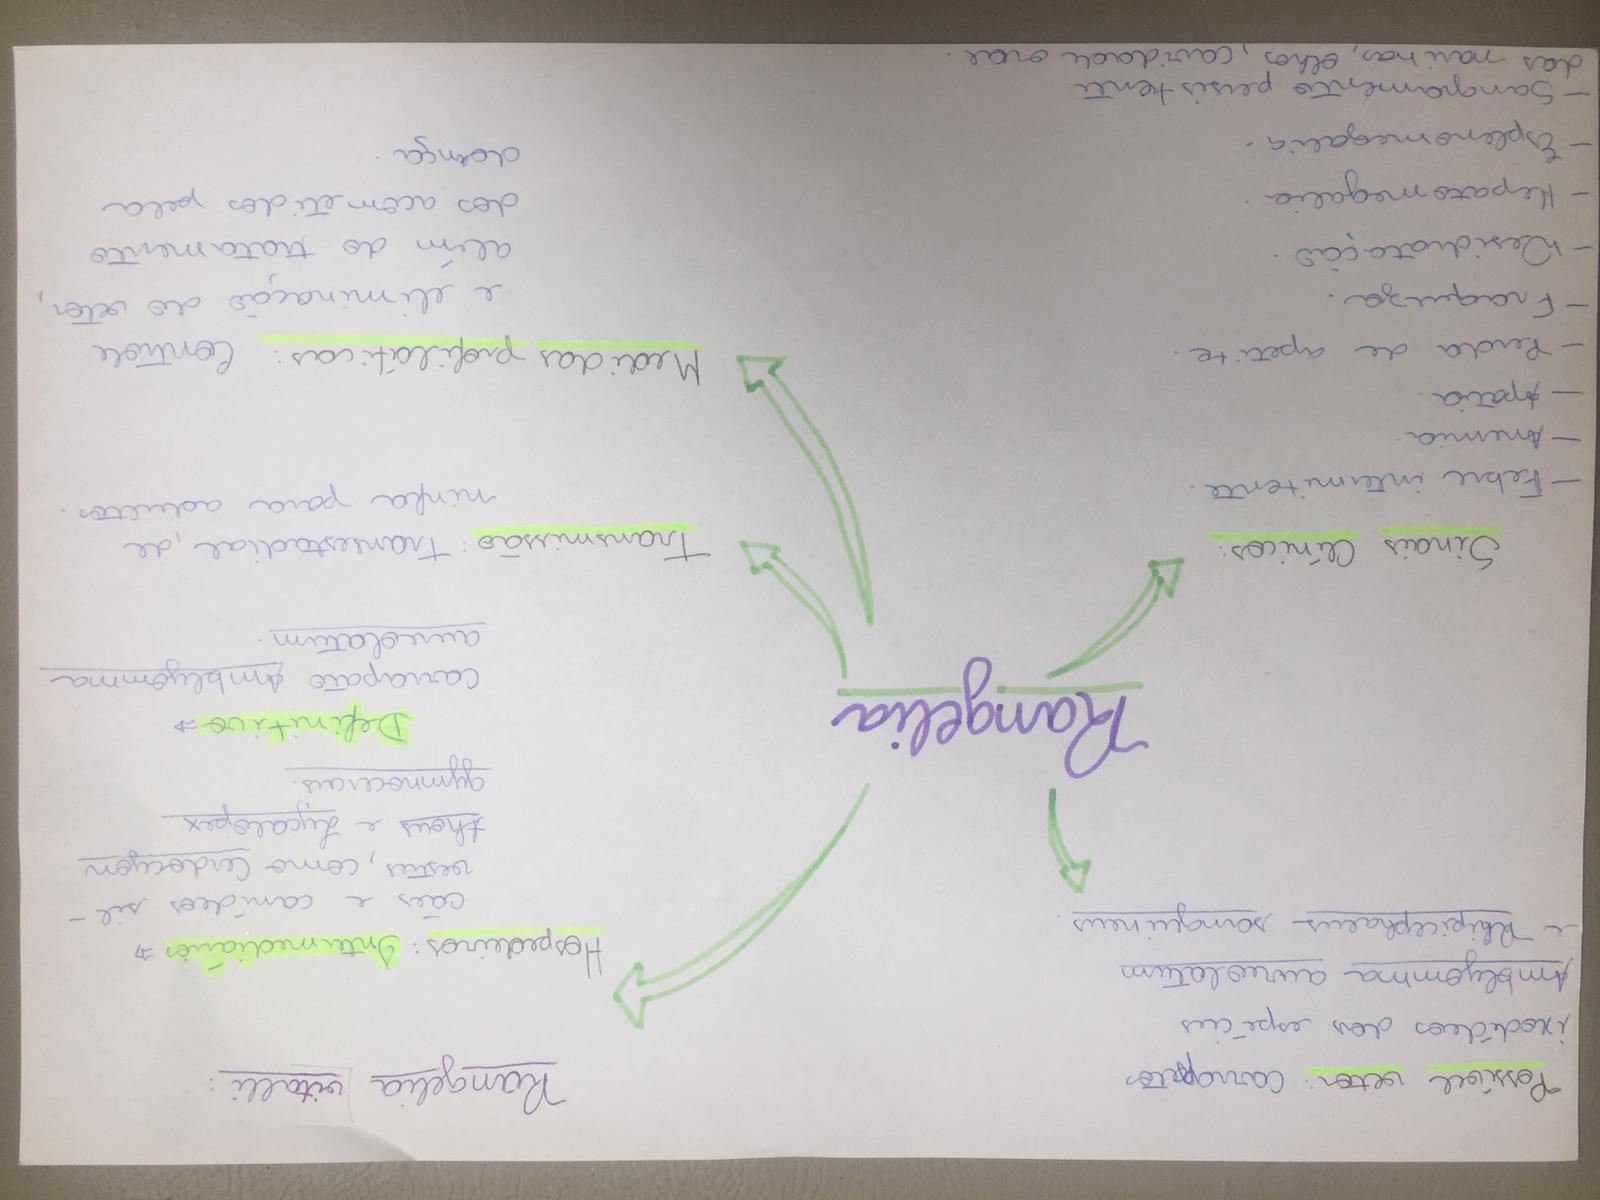 Rangelia vitalli:
Possível vetor: carrapatos
ixodídeos das espécies
Amblyomma aureolatum
e Rhipicephalus sanguineus.
Hospedeiros: Intermediários →
cães e canídeos sil-
vestres, como Cerdocyon
thous e Lycalopex
gymnocercus.
Definitivo →
carrapato Amblyomma
aureolatum.
Rangelia
Transmissão: Transestadial, de
ninfa para adultos.
Medidas profiláticas: Controle
e eliminação do vetor,
além do tratamento
dos acometidos pela
doença.
Sinais Clínicos:
- Febre intermitente.
- Anemia.
- Apatia
- Perda de apetite.
- Fraqueza.
- Desidratação.
- Hepatomegalia.
- Esplenomegalia.
- Sangramento persistente
das narinas, olhos, cavidade oral.